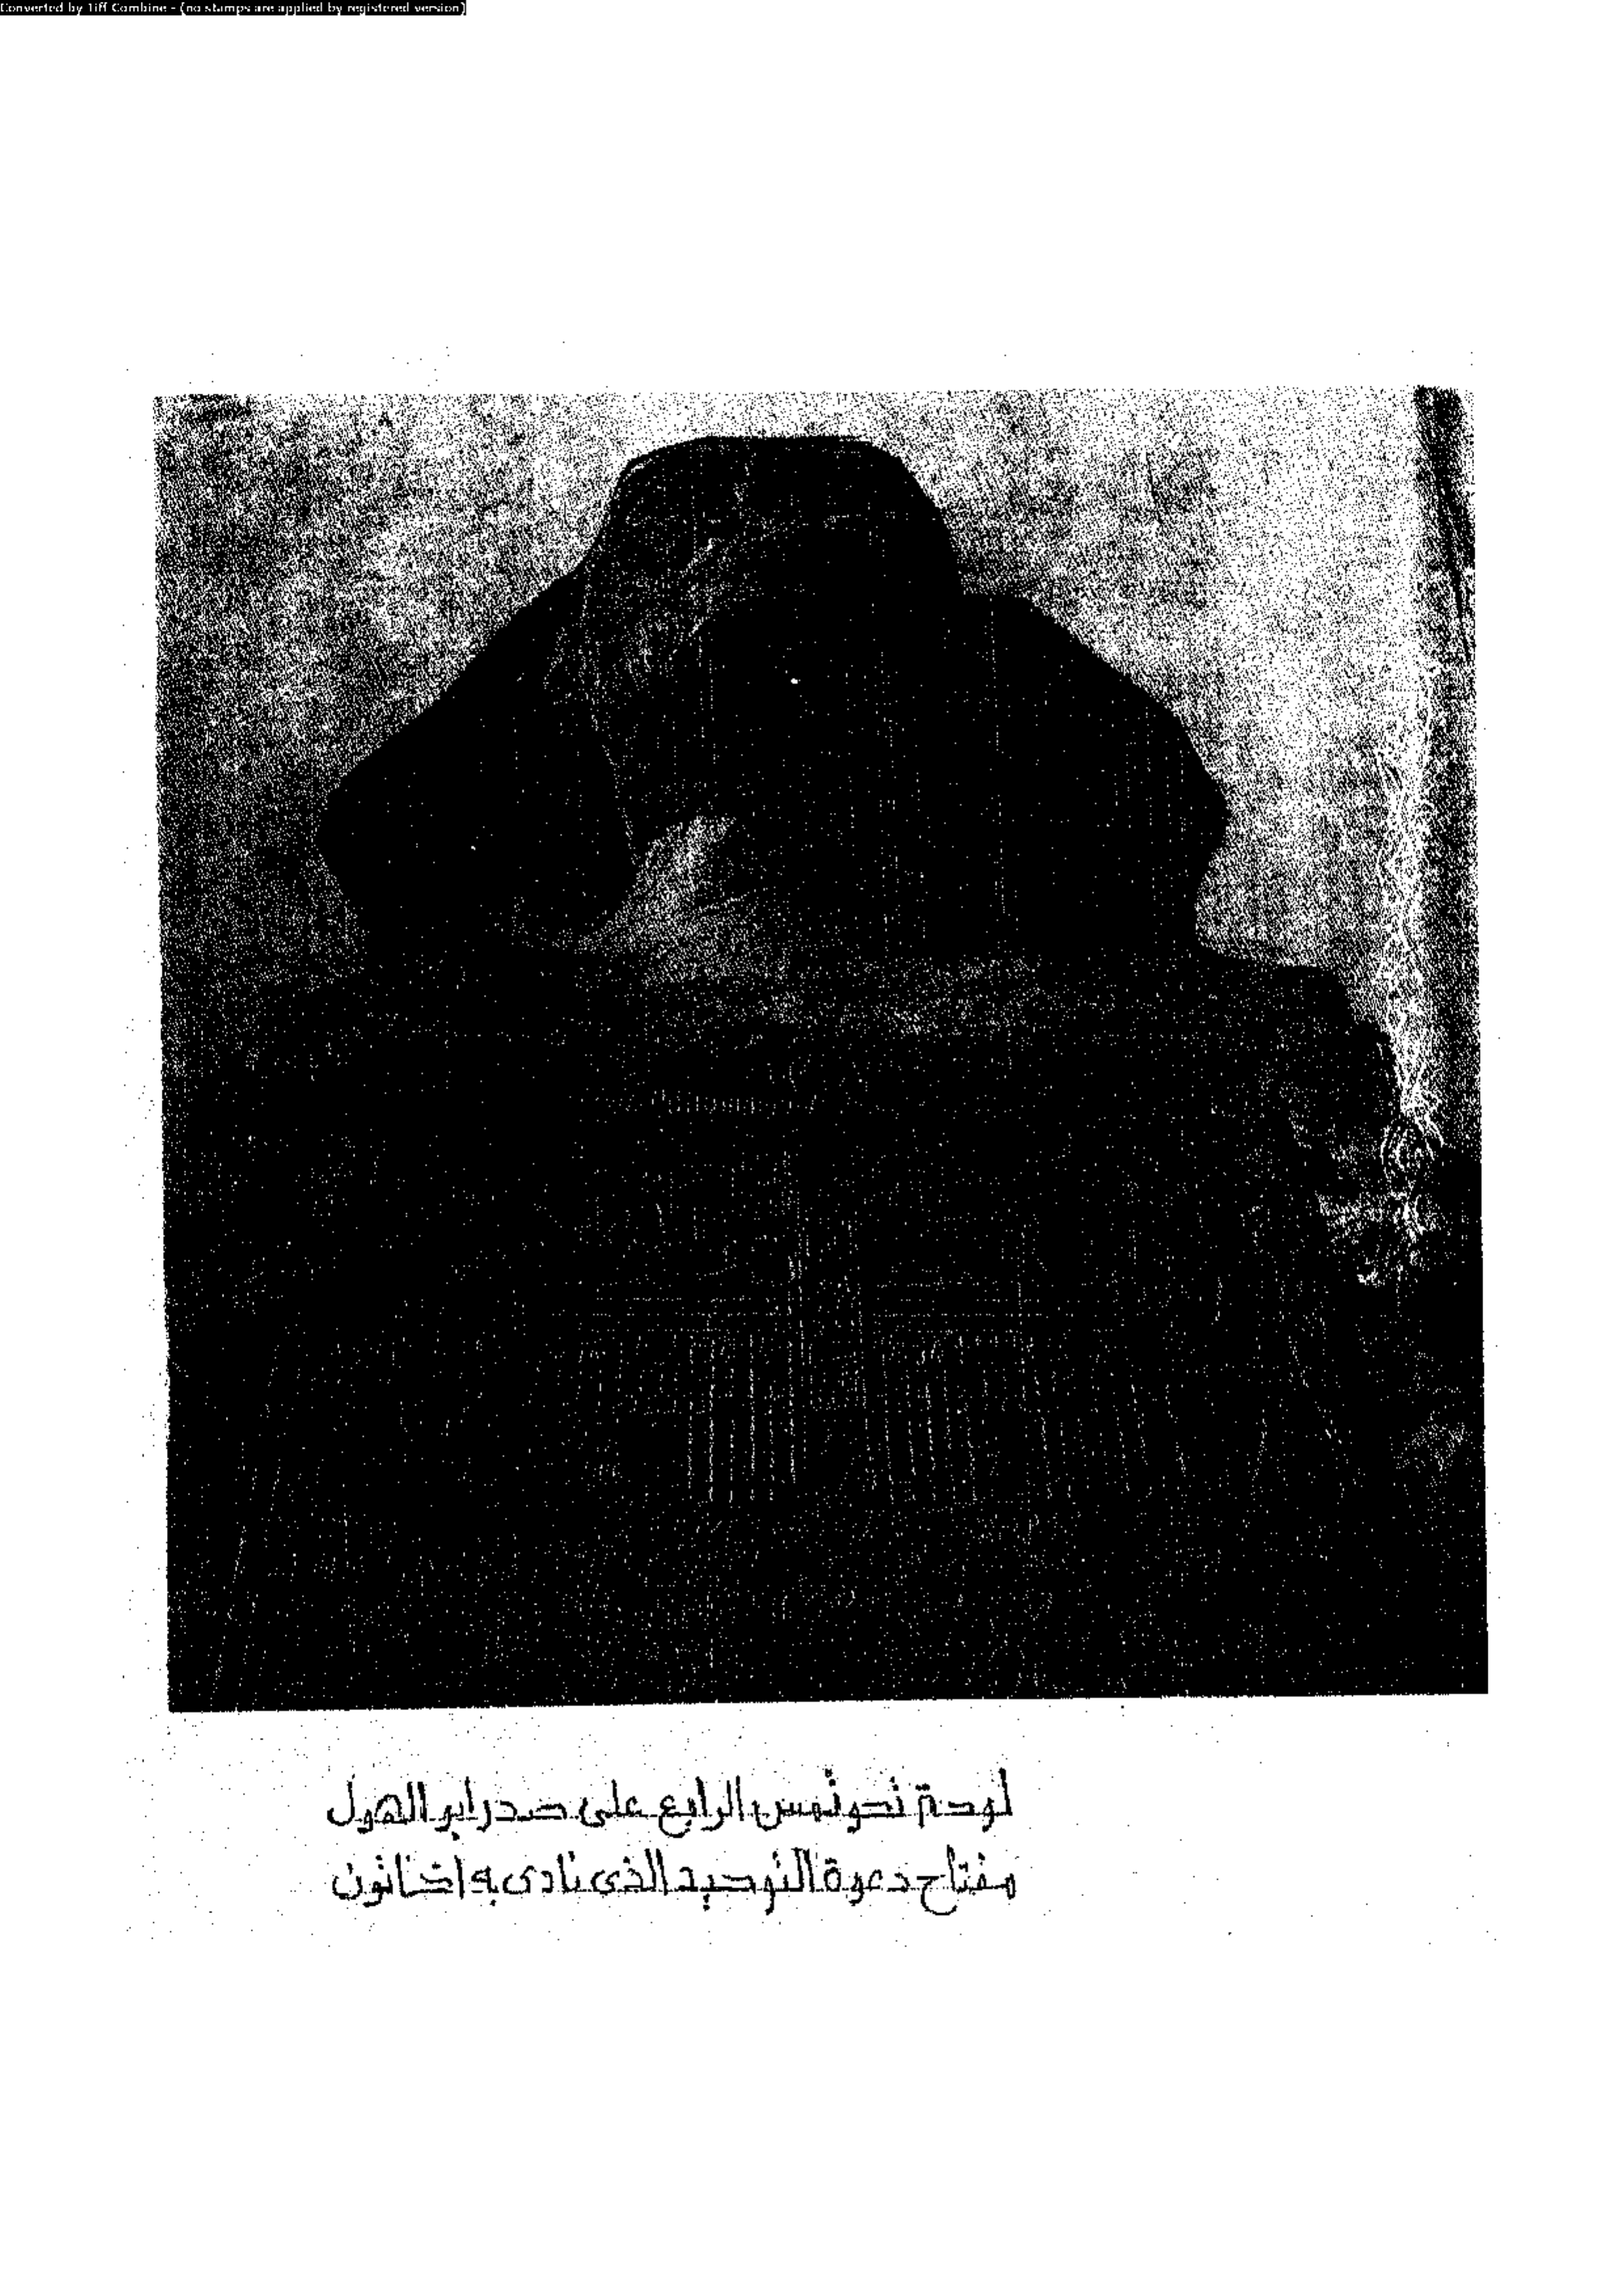 Converted by Tiff Combine - (no stamps are applied by registered version)
لوحة تحوتمس الرابع على صدر ابو الهول
مفتاح دعوة التوحيد الذى نادى به اخناتون